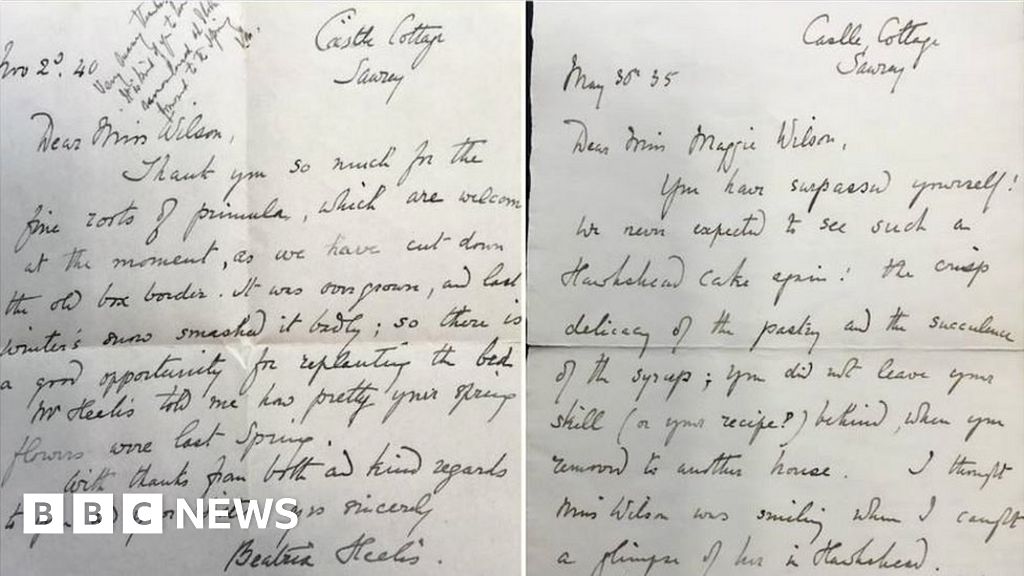 Nov 2d. 40
Very many thanks
Castle Cottage
Sawrey
Dear Miss Wilson,
Thank you so much for the
fine roots of primula, which are welcome
at the moment, as we have cut down
the old box border. It was overgrown, and last
winter's snow smashed it badly; so there is
a good opportunity for replanting the bed.
Mr Heelis told me how pretty your spring
flowers were last Spring.
With thanks from both and kind regards
to you yrs sincerely
Beatrix Heelis.
BBC NEWS
Castle Cottage
Sawrey
May 30th 35
Dear Miss Maggie Wilson,
You have surpassed yourself!
We never expected to see such an
Hawkshead cake again! the crisp
delicacy of the pastry and the succulence
of the syrup; you did not leave your
skill (or your recipe?) behind, when you
removed to another house. I thought
Miss Wilson was smiling when I caught
a glimpse of her in Hawkshead.